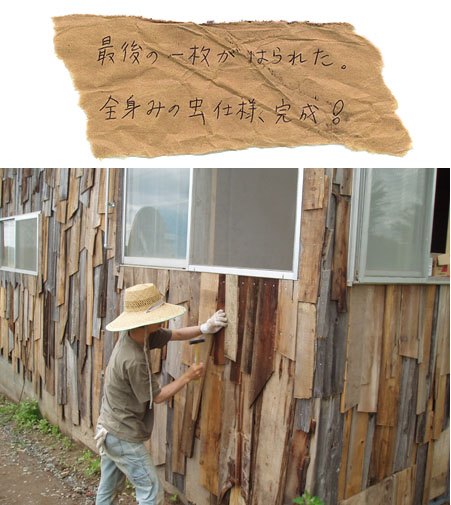 最後の一枚がはられた。
全身みの虫仕様、完成!